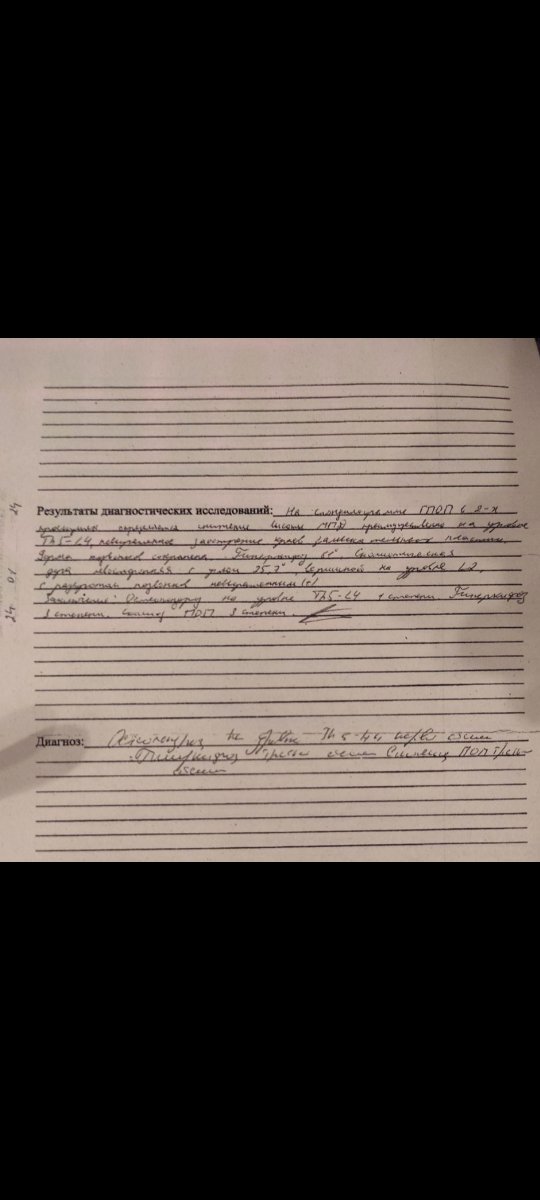 24. 01 24
Результаты диагностических исследований: На спондилограмме ГПОП в 2-х
проекциях определяется снижение высоты МПД преимущественно на уровне
Th5-L4, неправильное заострение краев замыкательных пластин.
Форма позвонков сохранена. Гиперкифоз 61°. Сколиотическая
дуга с углом 25.7°, вершиной на уровне L2,
с разворотом позвонков (+)
Заключение: Остеохондроз на уровне Th5-L4 1 степени. Гиперкифоз
3 степени. Сколиоз ПОП 3 степени.
Диагноз: Остеохондроз на уровне Th5-L4 первой степени
Гиперкифоз третьей степени Сколиоз ПОП третьей
степени